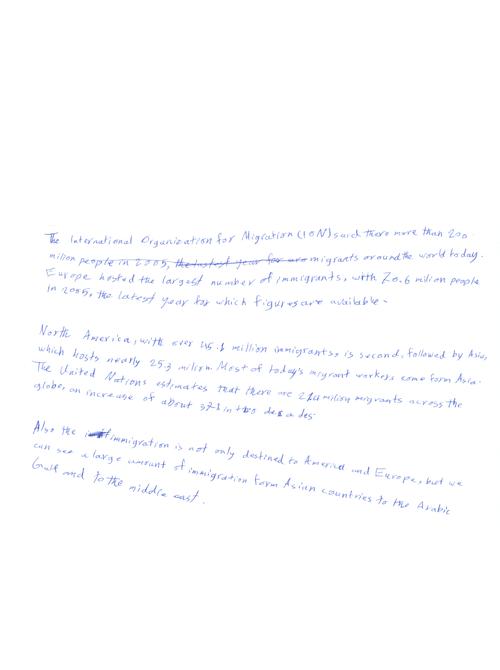 The International Organization for Migration (ION) said there more than 200
milion people in 2005, the lastest year for are migrants around the world today.
Europe hosted the largest number of immigrants, with 70.6 milion people
in 2005, the latest year for which figures are available.
North America, with over 45.1 million immigrants, is second, followed by Asia,
which hosts nearly 25.3 milion. Most of today's migrant workers come form Asia.
The United Nations estimates that there are 214 milion migrants across the
globe, an increase of about in two decades.
Also the immigration is not only destined to America and Europe, but we
can see a large amount of immigration form Asian countries to the Arabic
Gulf and to the middle east.